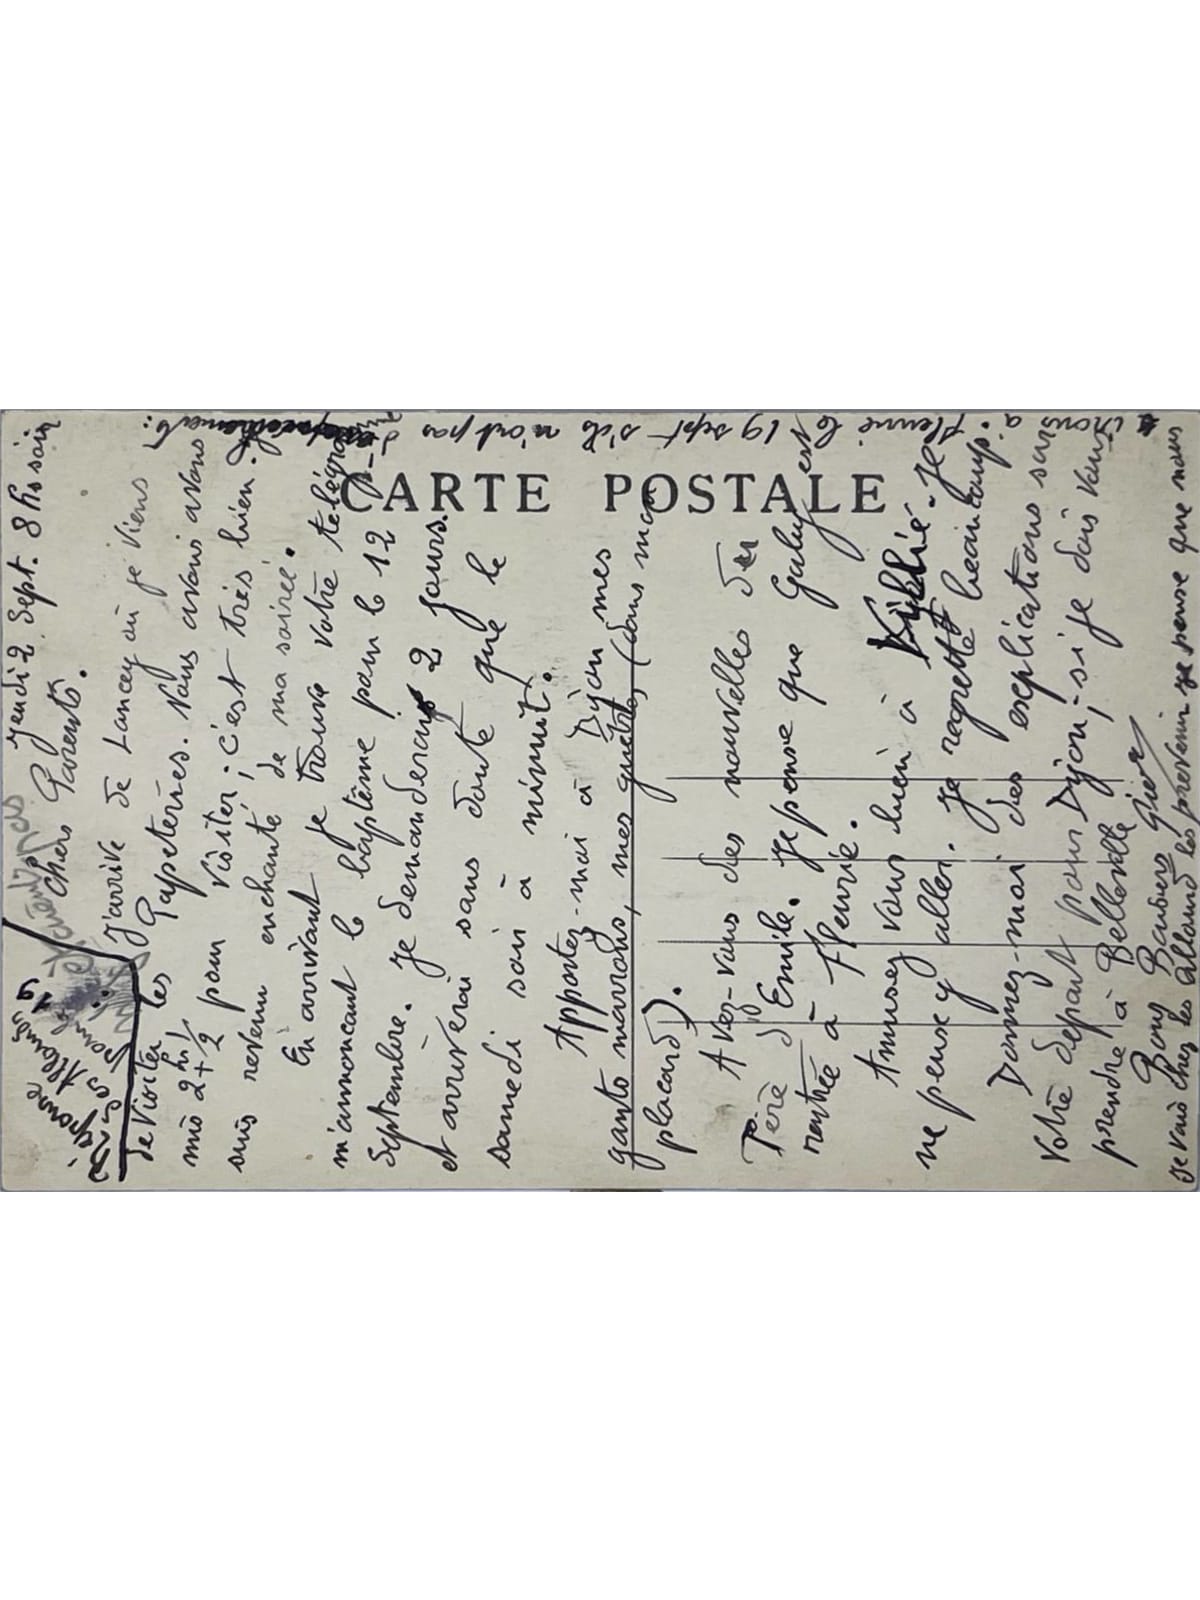 CARTE POSTALE
Jeudi 2 Sept. 8 hs soir
Chers Parents.
J'arrive de Lancey où je viens
de visiter les Papeteries. Nous avons avons
mis 2 hs + 1/2 pour visiter ; c'est très bien. Je
suis revenu enchanté de ma soirée.
En arrivant je trouve votre télégramme
m'annonçant le baptême pour le 12
Septembre. Je demanderai 2 jours.
et arriverai sans doute que le
samedi soir à minuit.
Apportez-moi à Dijon mes
gants marrons, mes guêtres (dans mon
placard).
Avez-vous des nouvelles du
Père d'Emile. Je pense que Gaby est
rentrée à Fleurié.
Amusez vous bien à Je
ne peux y aller. Je regrette beaucoup.
Donnez-moi des explications sur
votre départ pour Dijon, - si je dois vous
prendre à Belleville
Bons Baisers Gior
Je vais chez les Alland les prévenir je pense que nous
irons à Fleurié le 19 sept s'ils n'ont pas